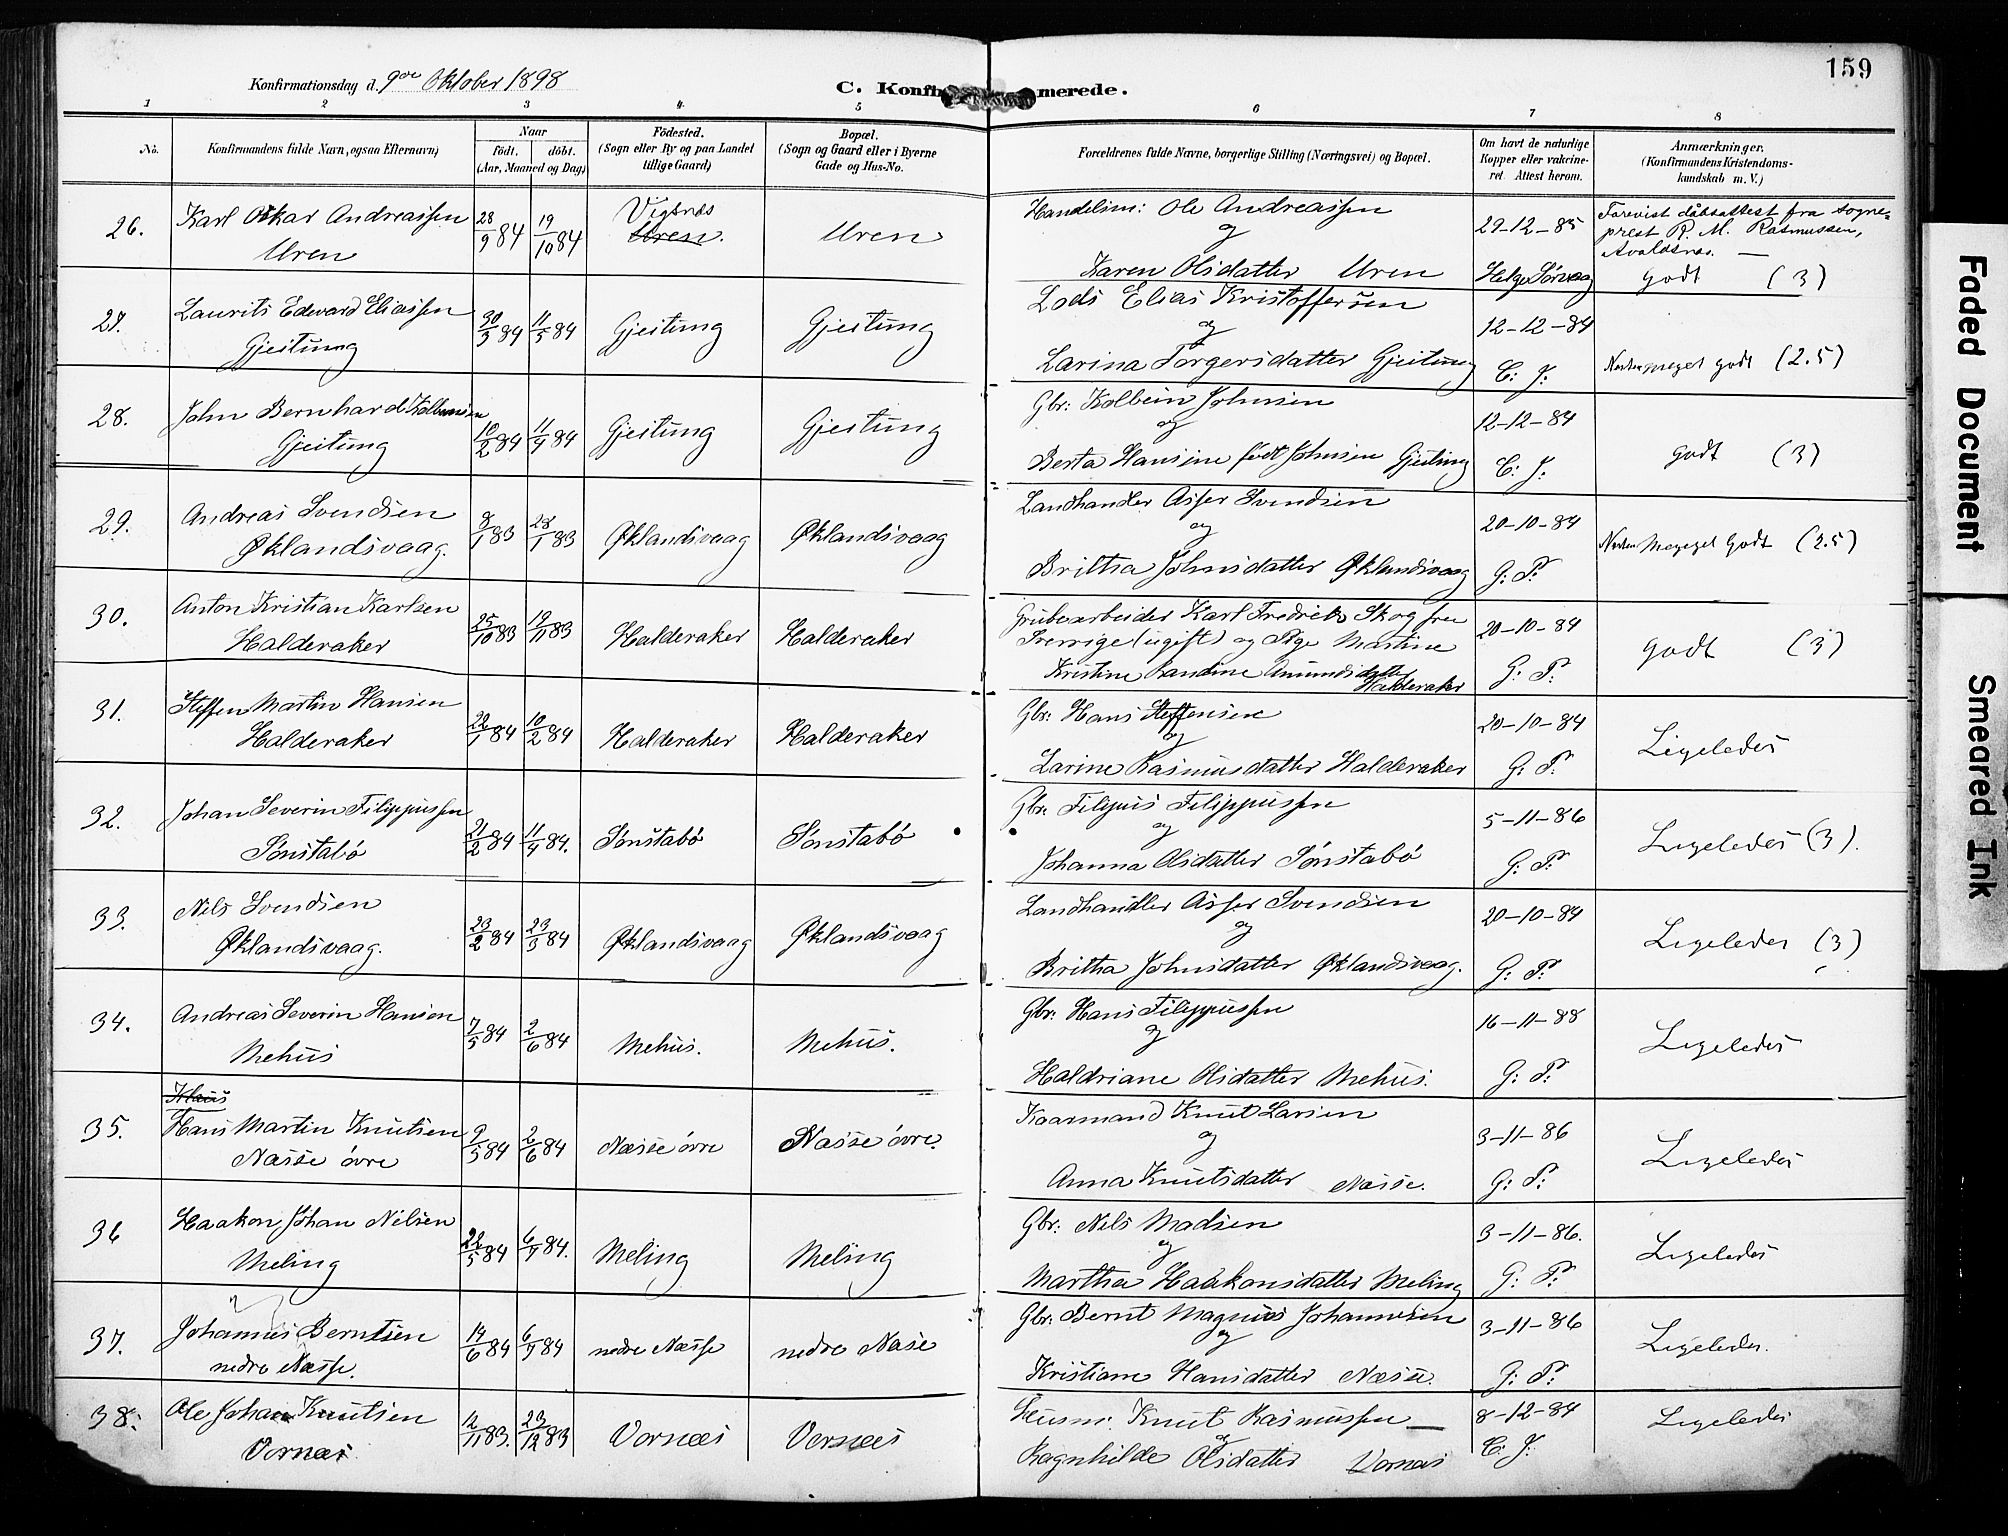 159
Konfirmationsdag d. 9de Oktober 1898
C. Konfirmerede.
1 2 3 4 5 6 7 8
No.
Konfirmandens fulde Navn, ogsaa Efternavn)
Naar
födt. döbt.
(Aar, Maaned og Dag)
Födested.
(Sogn eller By og paa Landet
tillige Gaard)
Bopæl.
(Sogn og Gaard eller i Byerne
Gade og Hus-No.
Forældrenes fulde Navne, borgerlige Stilling (Næringsvei) og Bopæl.
Om havt de naturlige
Kopper eller vakcine-
ret. Attest herom.
Anmærkninger.
(Konfirmandens Kristendoms-
kundskab m. V.)
26. Karl Oskar Andreassen
Uren
28/9 84 19/10 84 Vigsnes
Uren. Uren
Handelsm: Ole Andreassen
og
Karen Olsdatter Uren
29-12-85
Helge Sørvaag
Forevist dåbsattest fra sogne-
prest R. M. Rasmussen,
Avaldsnes. —
godt (3)
27. Laurits Edevard Eliassen
Gjeitung
30/3 84 11/5 84 Gjeitung Gjeitung
Lods Elias Kristoffersen
og
Larina Torgersdatter Gjeitung
12-12-84
C: J:
Næsten meget godt (2.5)
28. John Bernhard Kolbensen
Gjeitung
10/2 84 11/4 84 Gjeitung Gjeitung
Gbr: Kolbein Johnsen
og
Berta Hansine født Johnsen Gjeitung
12-12-84
C: J:
godt (3)
29. Andreas Svendsen
Øklandsvaag.
8/1 83 28/1 83 Øklandsvaag Øklandsvaag
Landhandler Asser Svendsen
og
Britha Johnsdatter Øklandsvaag
20-10-84
G: P:
Næsten Megeget Godt (2.5)
30. Anton Kristian Karlsen
Halderaker
25/10 83 19/11 83 Halderaker Halderaker
Grubearbeider Karl Fredrik Skog fra
Sverrige (ugift) og Pige Martine
Kristine Randine Amundsdatter
Halderaker
20-10-84
G: P:
godt (3)
31. Steffen Martin Hansen
Halderaker
22/1 84 10/2 84 Halderaker Halderaker
Gbr: Hans Steffensen
og
Larine Rasmusdatter Halderaker
20-10-84
G: P:
Ligeledes
32. Johan Severin Filippussen
Sønstabø
21/2 84 11/4 84. Sønstabø Sønstabø
Gbr: Filipus Filippussen
og
Johanna Olsdatter Sønstabø
5-11-86
G: P:
Ligeledes (3).
33. Nils Svendsen
Øklandsvaag.
23/2 84 23/3 84 Øklandsvaag Øklandsvaag
Landhandler Asser Svendsen
og
Britha Johnsdatter Øklandsvaag.
20-10-84
G: P:
Ligeledes (3)
34. Andreas Severin Hansen
Mehus
7/5 84 2/6 84 Mehus. Mehus.
Gbr: Hans Filippussen
og
Haldriane Olsdatter Mehus.
16-11-88
G: P:
Ligeledes
35. Klaus
Hans Martin Knutsen
Næsse øvre
9/5 84 2/6 84 Næsse øvre Næsse øvre.
Kaarmand Knut Larsen
og
Anna Knutsdatter Næsse.
3-11-86
G: P:
Ligeledes
36 Haakon Johan Nilsen
Meling
22/5 84 6/7 84. Meling Meling
Gbr: Nils Madsen
og
Martha Haakonsdatter Meling
3-11-86.
G: P:
Ligeledes
37. Johannes Berntsen
nedre Næsse.
14/6 84 6/7 84 nedre Næsse nedre Næse
Gbr: Bernt Magnus Johannesen
og
Kristiane Hansdatter Næsse.
3-11-86
G: P:
Ligeledes.
38. Ole Johan Knutsen
Vornæs
12/11 83. 23/12 83 Vornæs Vornæs
Husm: Knut Rasmussen —
og
Ragnhilde Olsdatter Vornæs
8-12-84
C: J:
Ligeledes
Faded Document
Smeared Ink